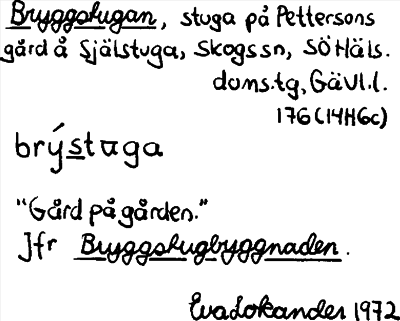 Bryggstugan, stuga på Pettersons
gård å Själstuga, Skogs sn, SÖHäls.
doms.tg, Gävl.l.
176 (14H6c)
brýstuga
"Gård på gården."
Jfr Bryggstugbyggnaden.
Eva Lokander 1972